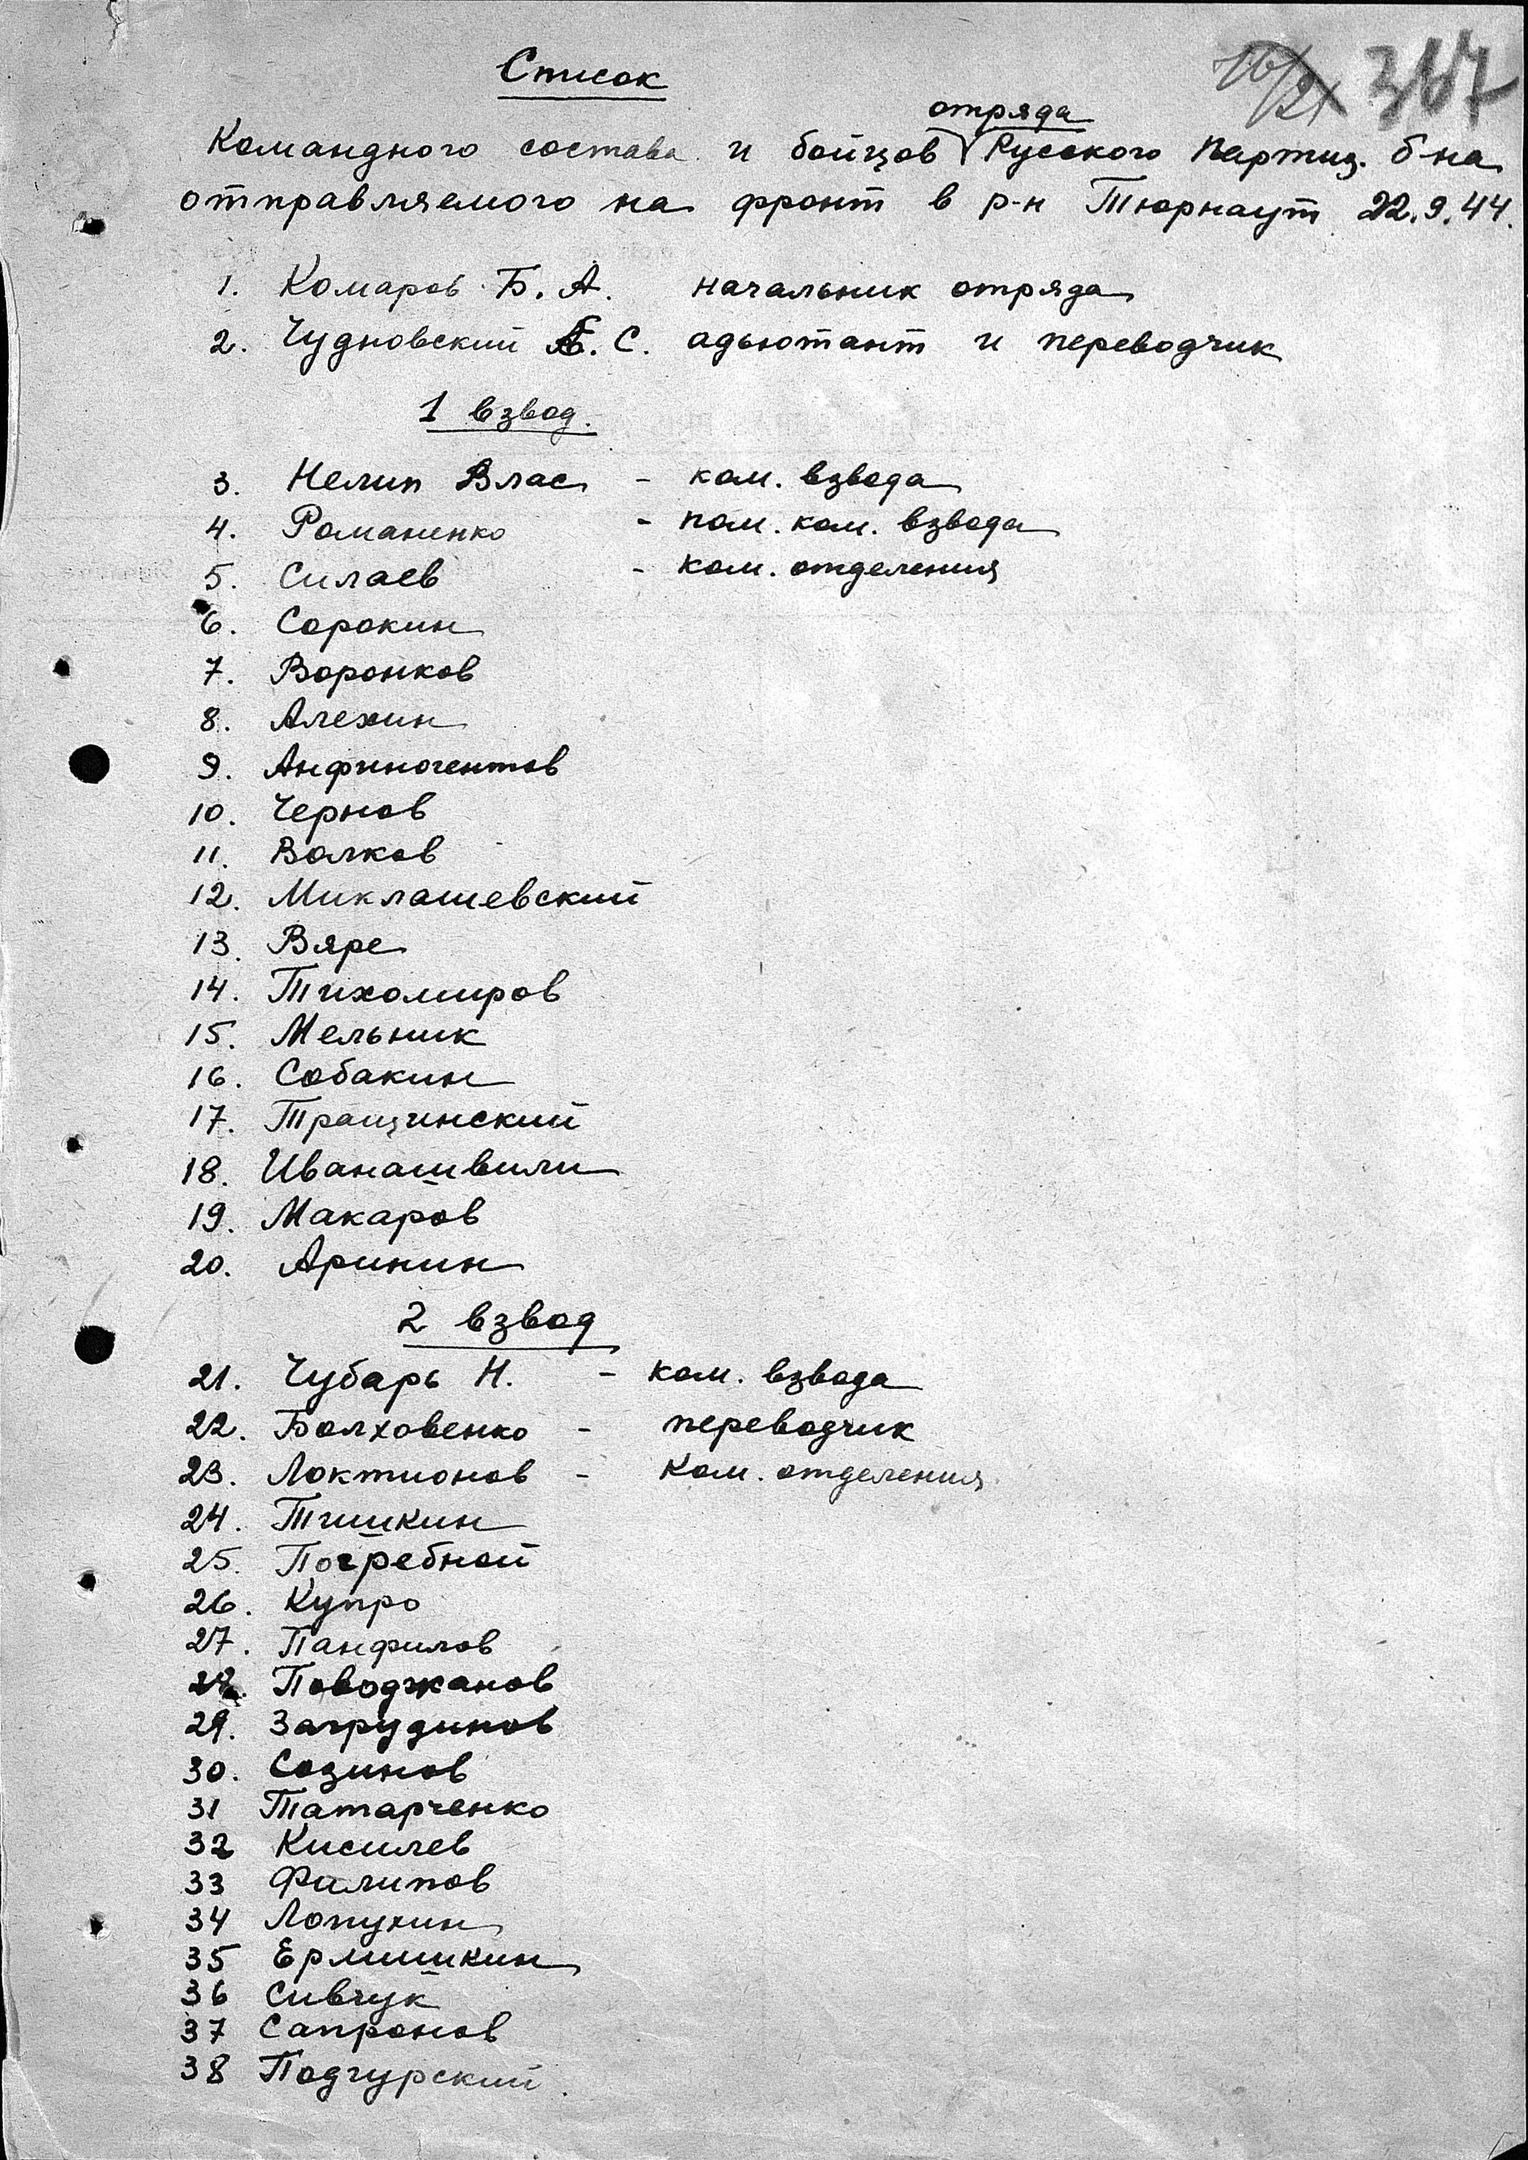 367
Список
отряда
Командного состава и бойцов Русского Партиз. б-на
отправляемого на фронт в р-н Тюрнаут 22.9.44.
1. Комаров Б. А. начальник отряда
2. Чудновский С. адьютант и переводчик
1 взвод.
3. Нелип Влас - ком. взвода
4. Романенко - пом. ком. взвода
5. Силаев - ком. отделения
6. Сорокин
7. Воронков
8. Алехин
9. Анфиногентов
10. Чернов
11. Волков
12. Миклашевский
13. Вяре
14. Тихомиров
15. Мельник
16. Собакин
17. Тращинский
18. Иванашвили
19. Макаров
20. Аринин
2 взвод
21. Чубарь Н. - ком. взвода
22. Болховенко - переводчик
23. Локтионов - Ком. отделения
24. Тишкин
25. Погребной
26. Купро
27. Панфилов
28. Поводжанов
29. Загрудинов
30. Созинов
31 Татарченко
32 Кисилев
33 Филипов
34 Лопухин
35 Ермишкин
36 Сивчук
37 Сапронов
38 Подгурский.